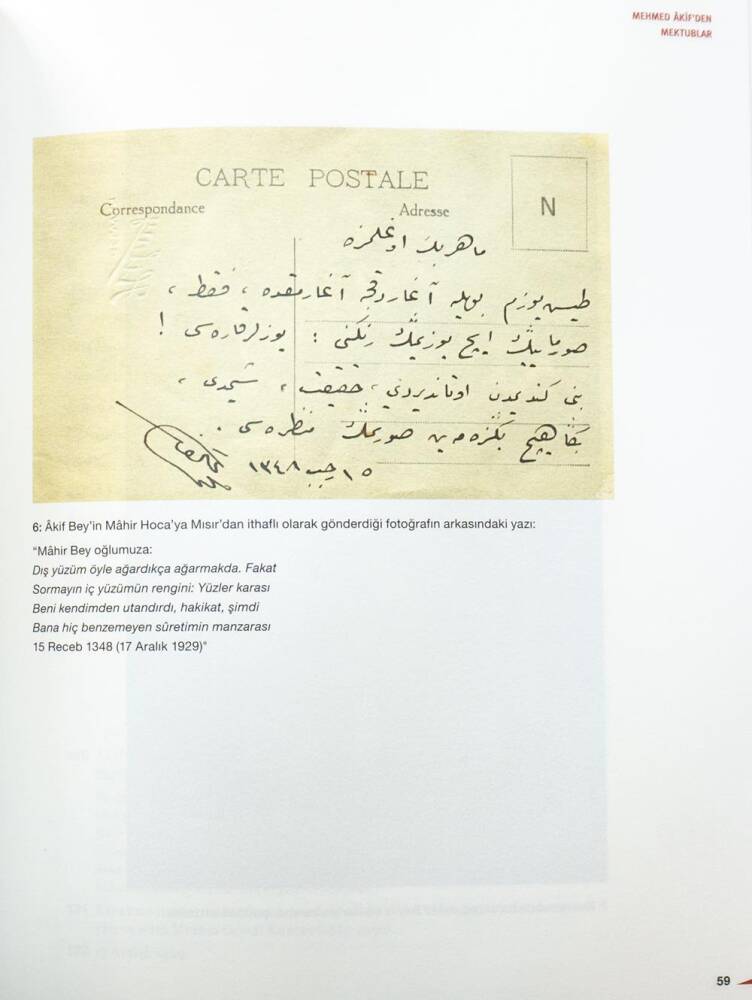 MEHMED ÂKİF'DEN
MEKTUBLAR
CARTE POSTALE
Correspondance
Adresse
N
ماهر بك اوغلمزه
طيش يوزم بويله آغاردقجه آغارمقده ، فقط ،
صورمايڭ ايچ يوزيمڭ رنكنى : يوزلر قاره سى !
بنى كنديمدن اوتانديردى ، حقيقت ، شيمدى ،
بڭا هيچ بكزه مه ين صورتمڭ منظره سى .
١٥ رجب ١٣٤٨
6: Âkif Bey'in Mâhir Hoca'ya Mısır'dan ithaflı olarak gönderdiği fotoğrafın arkasındaki yazı:
"Mâhir Bey oğlumuza:
Dış yüzüm öyle ağardıkça ağarmakda. Fakat
Sormayın iç yüzümün rengini: Yüzler karası
Beni kendimden utandırdı, hakikat, şimdi
Bana hiç benzemeyen sûretimin manzarası
15 Receb 1348 (17 Aralık 1929)"
59